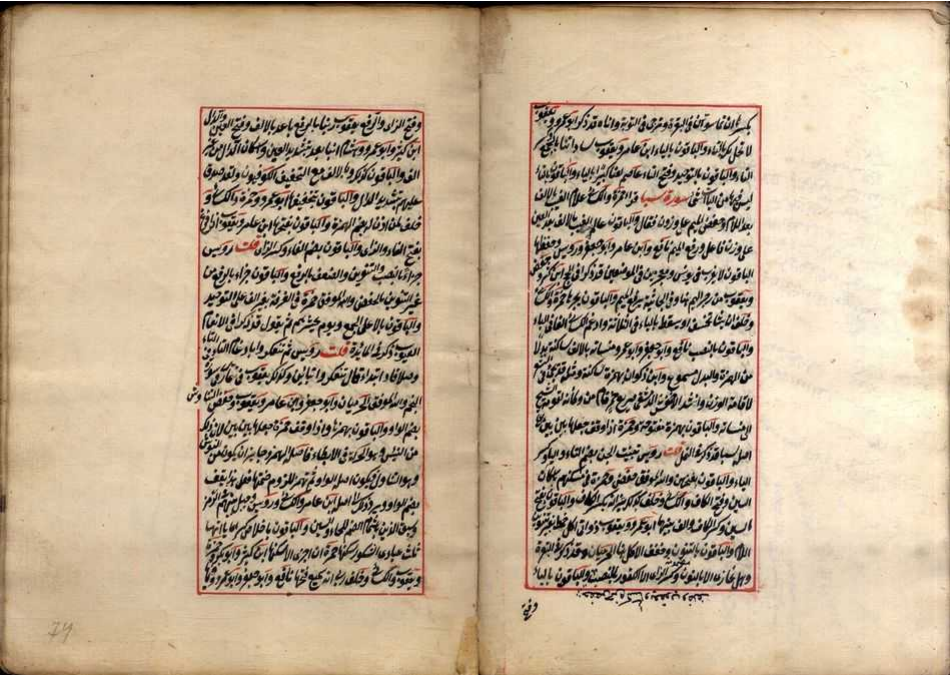 لا تحل لك بالتاء والباقون بالياء ابن عامر ويعقوب ساداتنا بالجمع وكسر
التاء والباقون بالتوحيد وفتح التاء عاصم لعنا كبيرا بالباء والباقون بالثاء
ليس فيها من الياآت شئ سورة سبا قرا حمزة والكسائي علام الغيب بالالف
بعد اللام وخفض الميم على وزن فعال والباقون عالم الغيب بالالف بعد العين
على وزن فاعل ورفع الميم نافع وابن عامر وابو جعفر ورويس وخفضها
الباقون لا يعزب في يونس ومعجزين في الموضعين قد ذكر في الحج ابن كثير وحفص
ويعقوب من رجز اليم هنا وفي الجاثية برفع الميم والباقون بجرها حمزة والكسائي
وخلف ان يشا يخسف او يسقط بالياء في الثلاثة وادغم الكسائي الفاء في الباء
والباقون نافع وابو جعفر وابو عمرو منساته بالالف ساكنة بدلا
من الهمزة والبدل مسموع وابن ذكوان بهمزة ساكنة ومثله قد يجئ في الشعر
لاقامة الوزن وانشد الاخفش صريع خمر قام من وكاته كقومة الشيخ
الى منساته والباقون بهمزة مفتوحة وحمزة اذا وقف جعلها بين بين على
اصله لسبا قد ذكر في النمل قلت رويس تبينت الجن بضم التاء والباء وكسر
الياء والباقون بفتحهن والله الموفق حفص وحمزة في مسكنهم باسكان
السين وفتح الكاف والكسائي وخلف كذلك غير انه بكسر الكاف والباقون بفتح
السين وكسر الكاف والف بينهما ابو عمرو ويعقوب ذواتي اكل خمط بغير تنوين
اللام والباقون بالتنوين وخفف الاكل هنا الحرميان وقد ذكر في البقرة
وهل نجازي الا بالنون وكسر الزاى الا الكفور بالنصب والباقون بالياء
وفتح
وفتح الزاى والرفع يعقوب ربنا بالرفع باعد بالالف وفتح العين والدال
ابن كثير وابو عمرو وهشام ربنا بعد بتشديد العين واسكان الدال من غير
الف والباقون كذلك وبالالف مع التخفيف الكوفيون ولقد صدق
عليهم بتشديد الدال والباقون بتخفيفها ابو عمرو وحمزة والكسائي و
خلف لمن اذن له بضم الهمزة والباقون بفتحها ابن عامر ويعقوب اذا فزع
بفتح الفاء والزاى والباقون بضم الفاء وكسر الزاى قلت رويس
جزاء بالنصب والتنوين والضعف بالرفع والباقون جزاء بالرفع من
غير التنوين بالخفض والله الموفق حمزة في الغرفة بغير الف على التوحيد
والباقون بالالف على الجمع ويوم يحشرهم ثم يقول قد ذكر في الانعام
الغيوب ذكر في المائدة قلت رويس ثم تتفكروا بادغام التاء في التاء
وصلا فاذا ابتدا قال تتفكروا بتائين وكذلك يعقوب في تماري
والله الموفق الحرميان وابو جعفر وابن عامر ويعقوب وحفص التناوش
بضم الواو والباقون بهمزها واذا وقف حمزة جعلها بين بين لان ذلك
من النئيش وهو الحركة في الابطاء فاصله الهمز وجايز ان يكون من النوش
وهو التناول فيكون اصله الواو ثم تهمز للزوم ضمتها فعلى هذا يقف
بضم الواو ويرد ذلك الى اصله ابن عامر والكسائي ورويس وحيل باشمام
وسيق الذين باشمام الضم للحاء والسين والباقون باخلاص كسرها ياآتها
ثلث عبادي الشكور سكنها حمزة ان اجري الا سكنها ابن كثير وابو بكر وحمزة
ويعقوب والكسائي وخلف ربي انه سميع فتحها نافع وابو جعفر وابو عمرو وفيها
74